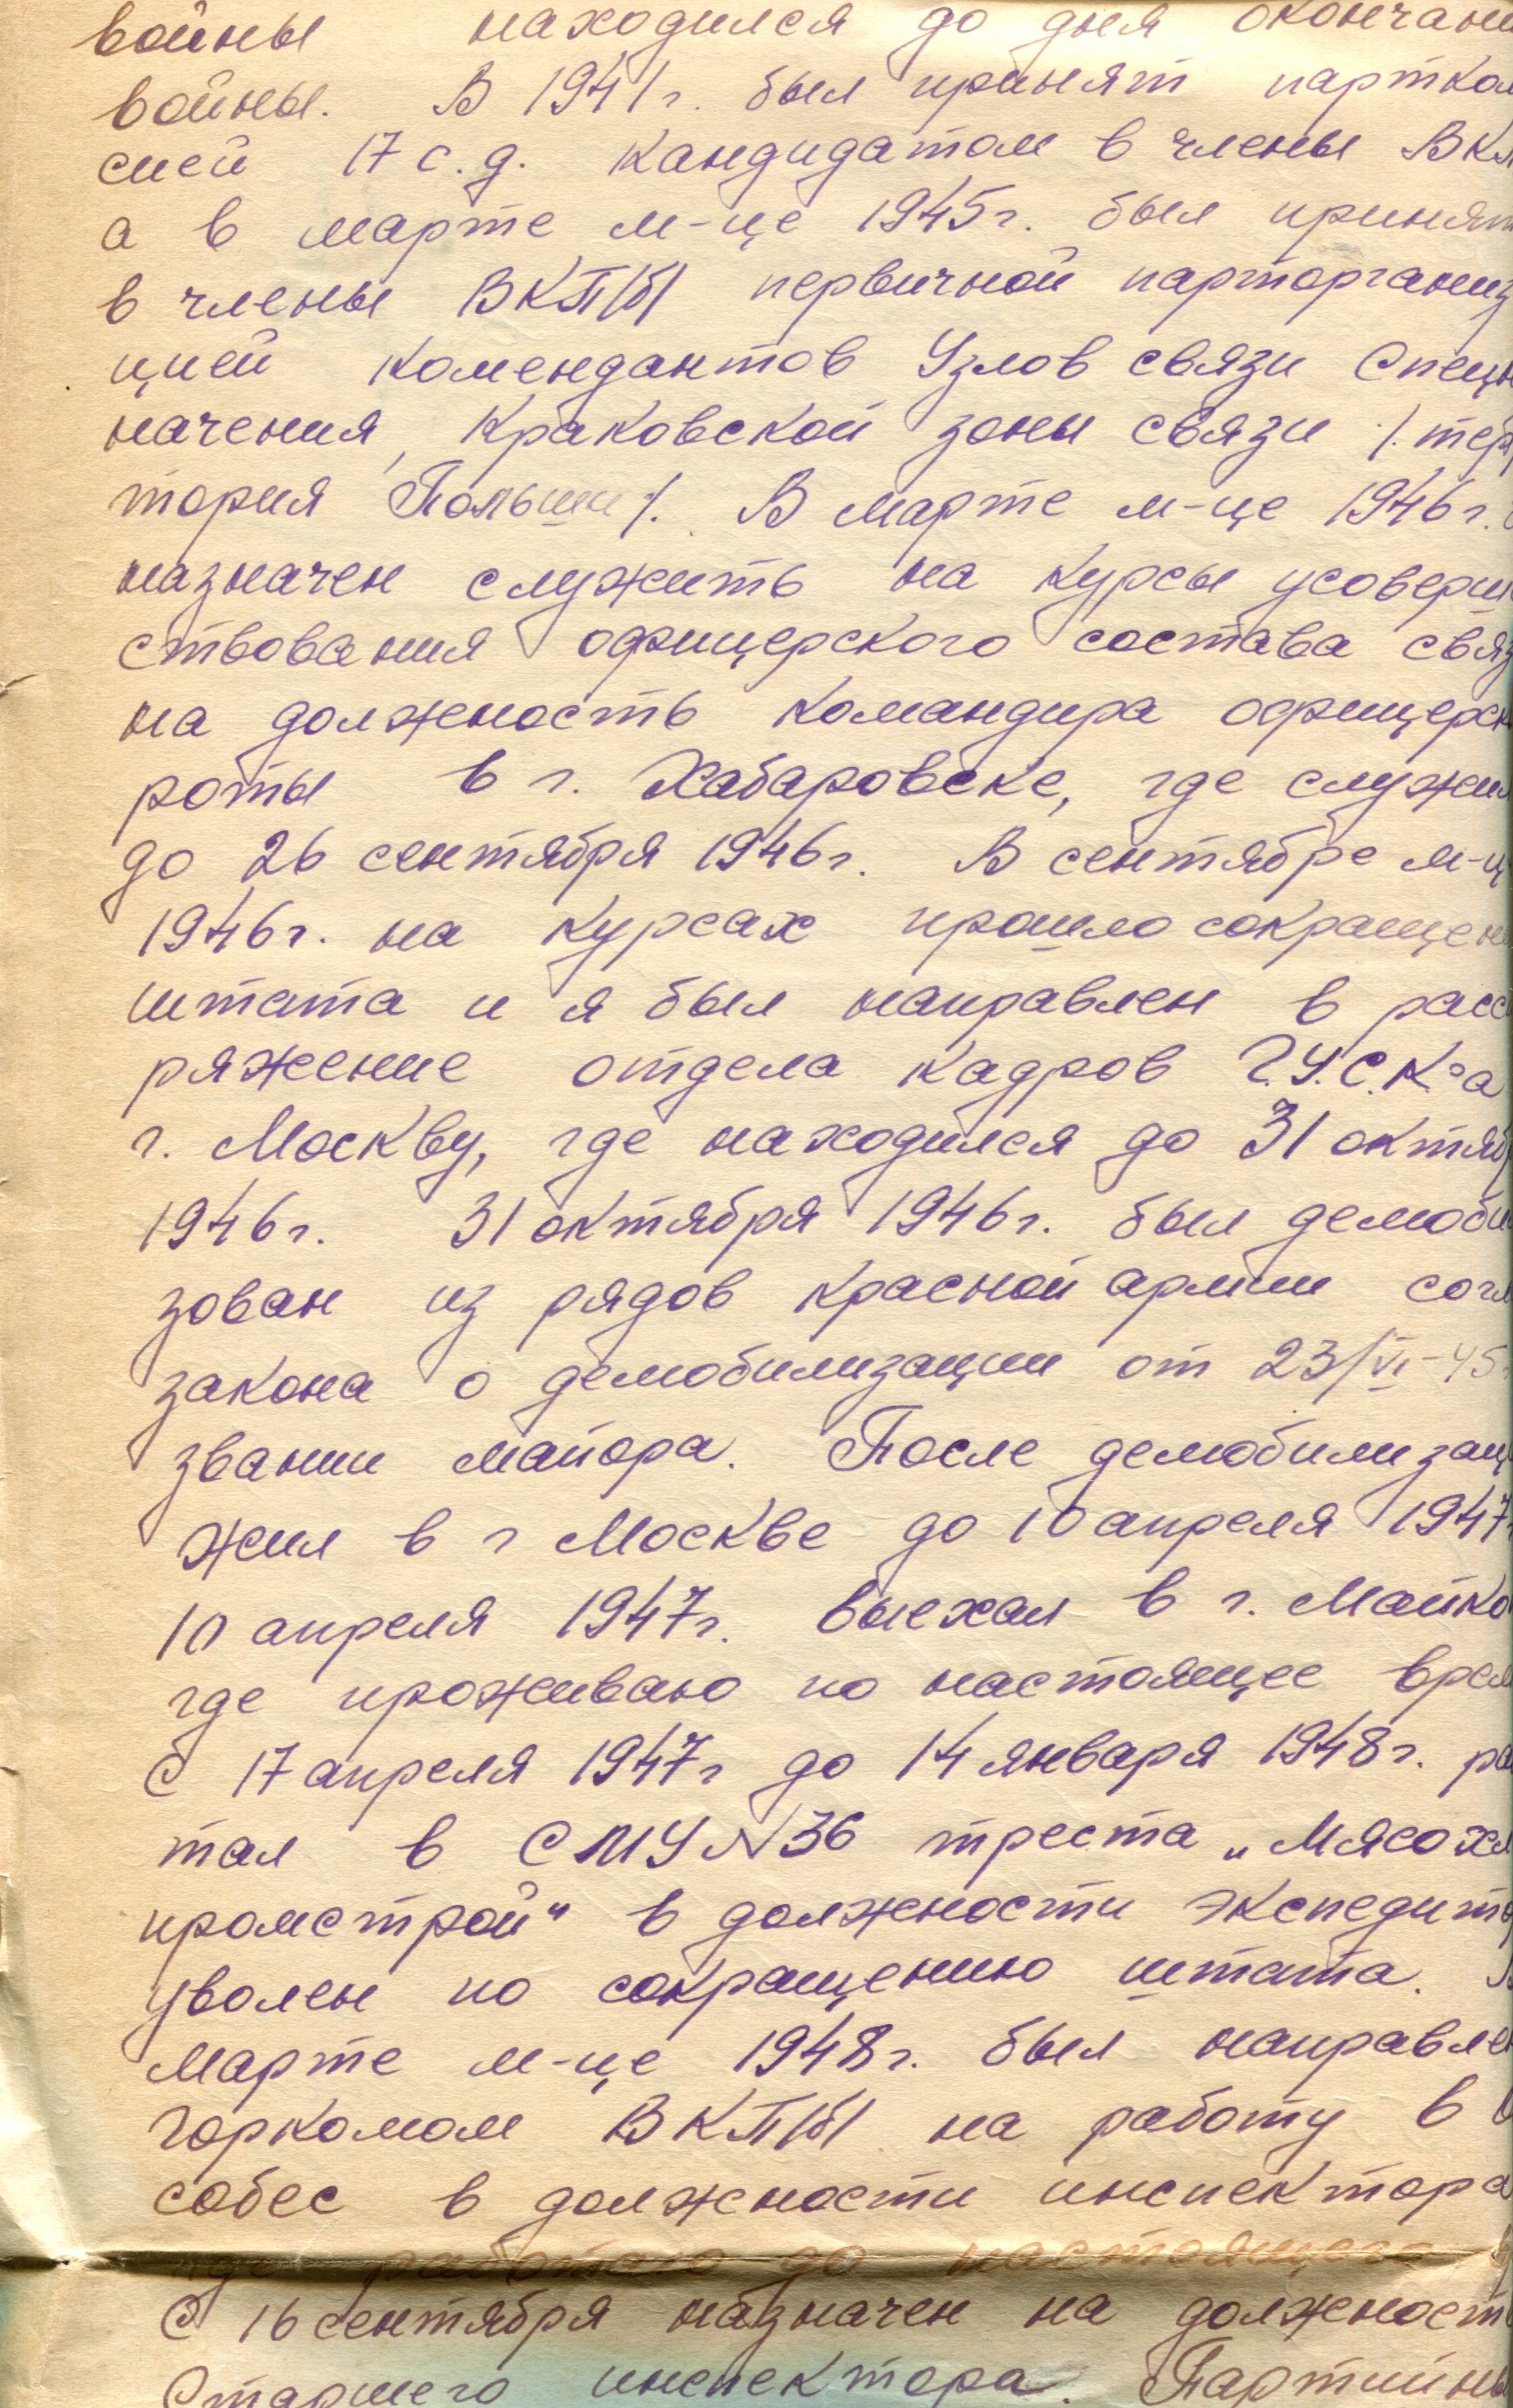 войны находился до дня окончани
войны. В 1941г. был принят партком
сией 17 с.д. кандидатом в члены ВКП
а в марте м-це 1945г. был принят
в члены ВКП/б/ первичной парторганиз
цией комендантов Узлов связи Спецн
начения, Краковской зоны связи /. терр
тория Польши/. В марте м-це 1946г.
назначен служить на курсы усоверш
ствования офицерского состава связ
на должность командира офицерск
роты в г. Хабаровске, где служил
до 26 сентября 1946г. В сентябре м-ц
1946г. на курсах прошло сокращен
штата и я был направлен в расс
ряжение отдела кадров Г.У.С.К-а
г. Москву, где находился до 31 октяб
1946г. 31 октября 1946г. был демоби
зован из рядов красной армии согл
закона о демобилизации от 23/VI-45
звании майора. После демобилизац
жил в г Москве до 10 апреля 1947
10 апреля 1947г. выехал в г. Майко
где проживаю по настоящее врем
С 17 апреля 1947г до 14 января 1948г. ра
тал в СМУ N36 треста „Мясохл
промстрой" в должности экспедито
уволен по сокращению штата. В
марте м-це 1948г. был направлен
Горкомом ВКП/б/ на работу в
собес в должности инспектора
где работаю до настоящего в
С 16 сентября назначен на должност
Старшего инспектора. Партийны